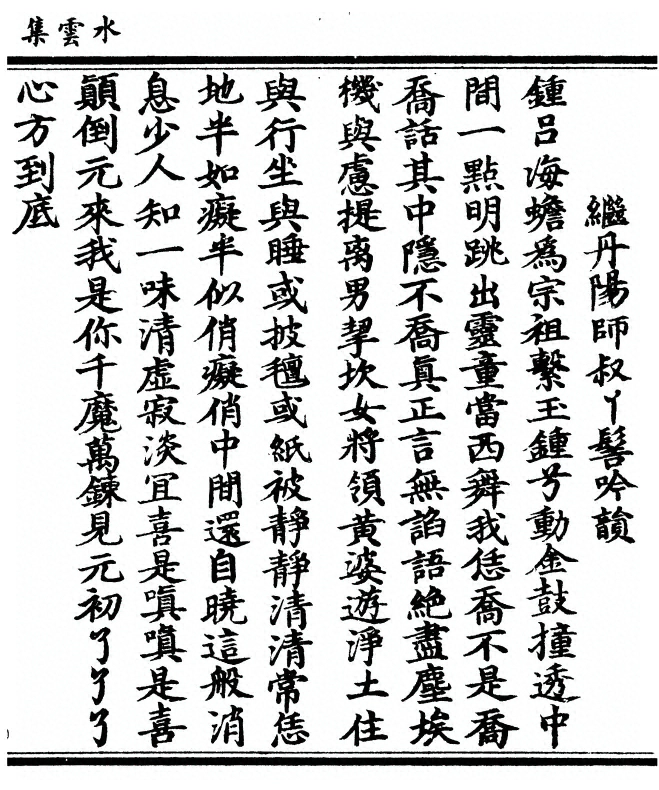 水雲集
繼丹陽師叔丫髻吟韻
鍾呂海蟾爲宗祖繫玉鍾兮動金鼓撞透中
間一點明跳出靈童當西舞我恁喬不是喬
喬話其中隱不喬眞正言無諂語絕盡塵埃
機與慮提离男挈坎女將領黃婆遊淨土住
與行坐與睡或披氊或紙被靜靜清清常恁
地半如癡半似俏癡俏中間還自曉這般消
息少人知一味清虛寂淡冝喜是嗔嗔是喜
顛倒元來我是你千魔萬鍊見元初了了了
心方到底